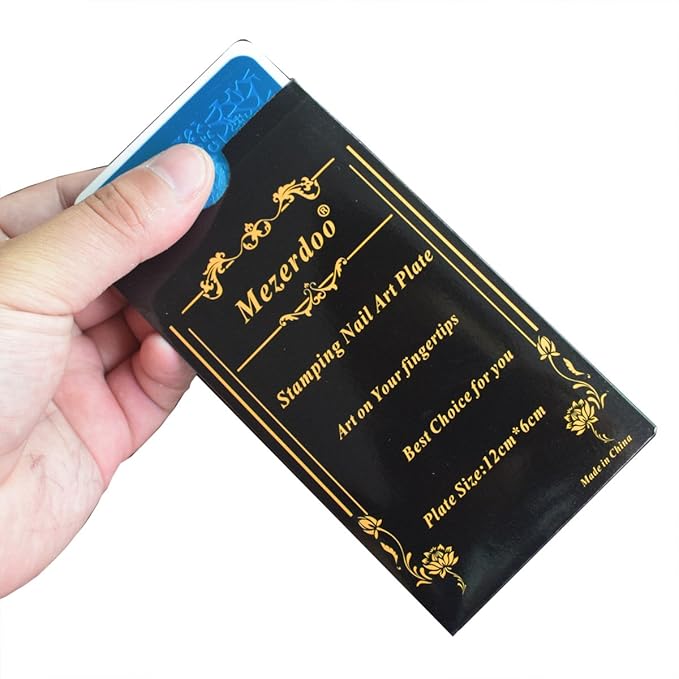 Mezerdoo®
Stamping Nail Art Plate
Art on Your fingertips
Best Choice for you
Plate Size:12cm*6cm
Made in China